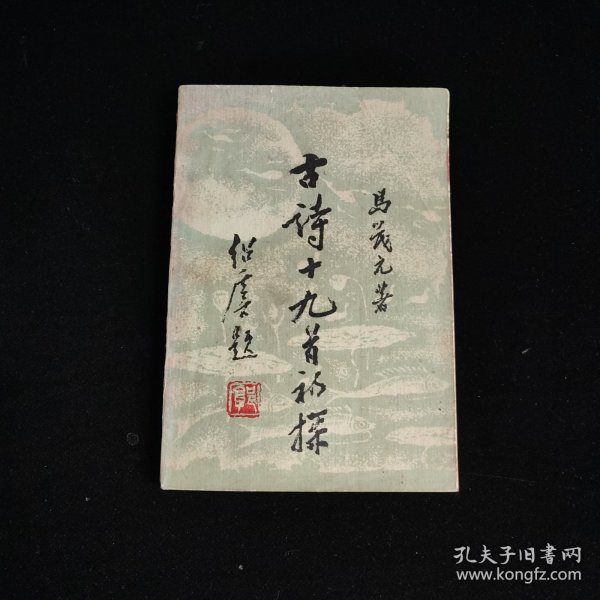 马茂元著
古詩十九首初探
绍虞题
孔夫子旧書网
www.kongfz.com